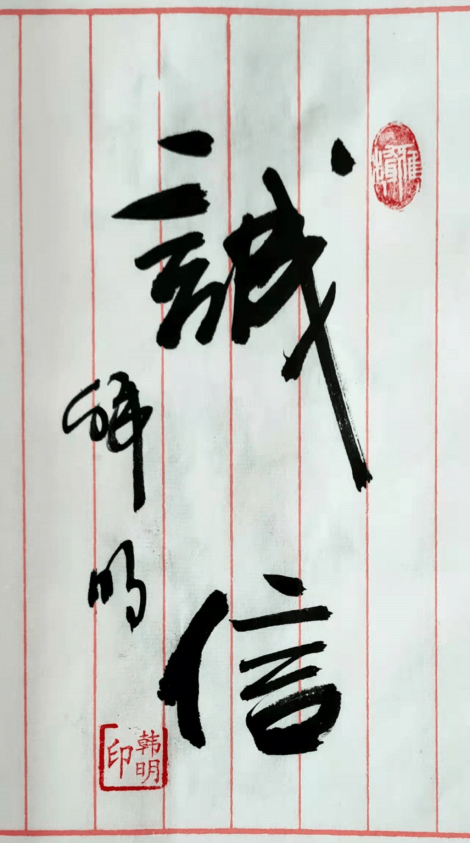 誠信
韓明
韩明印